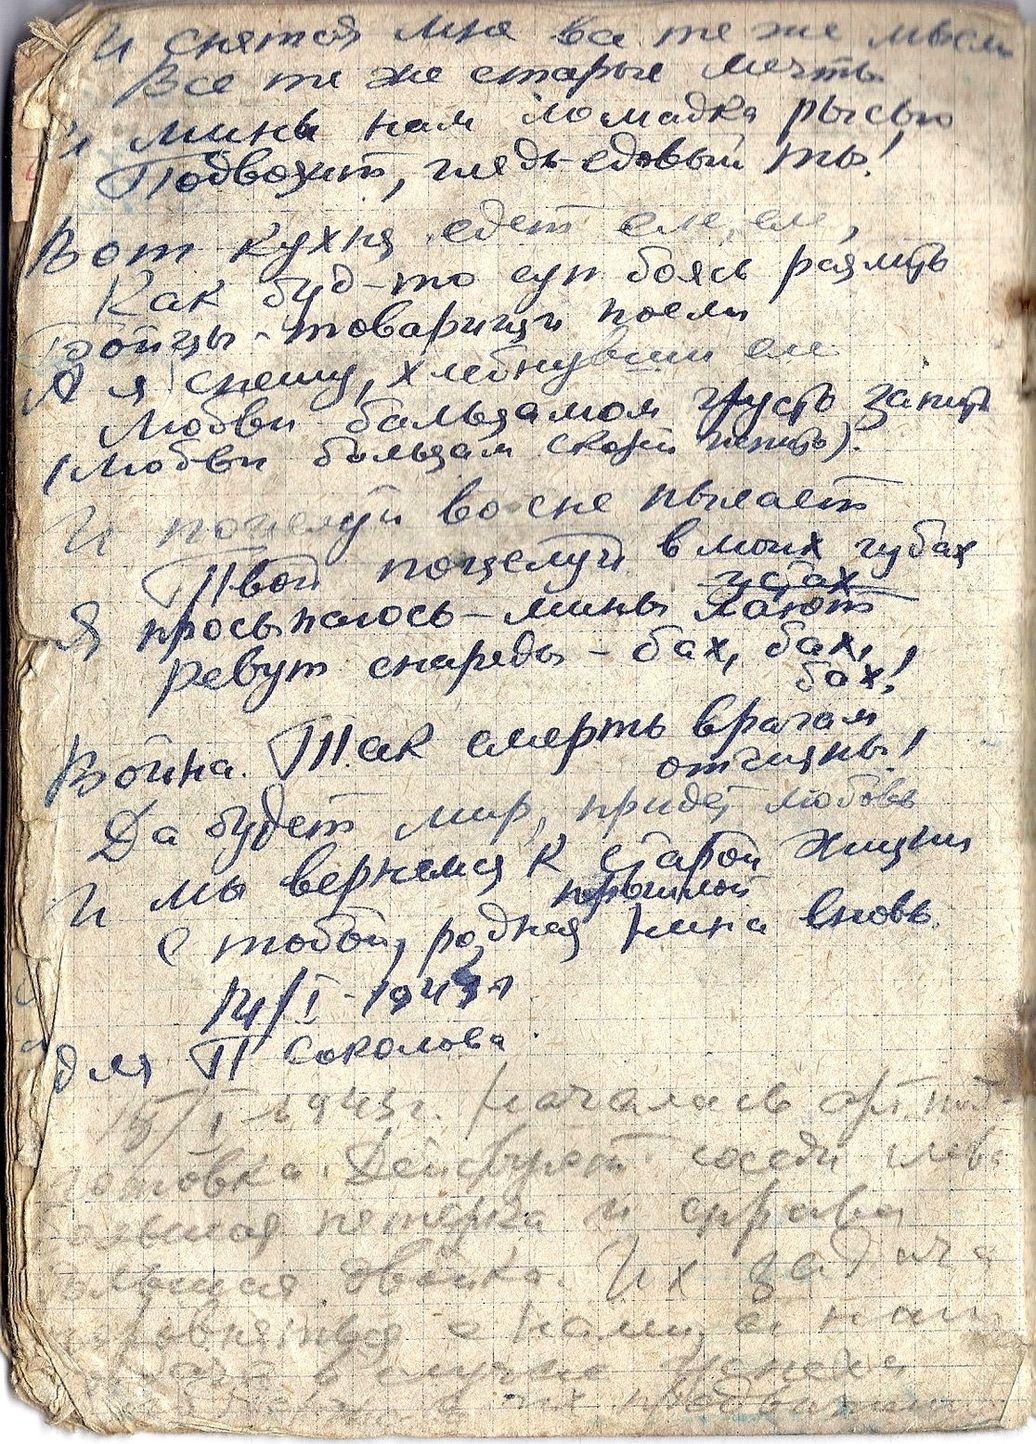 И снятся мне все те же мысли
Все те же старые мечты
и мины нам лошадка рысью
Подвозит, глядь ездовый ты!
Вот кухня едет еле, еле,
Как буд-то суп боясь разлить
Бойцы-товарищи поели
А я спешу, хлебнувши еле
Любви бальзамом грусть запить
(Любви бальзам скорей испить).
И поцелуй во сне пылает
Твой поцелуй в моих губах
устах
Я просыпаюсь – мины лают
Ревут снаряды – бах, бах,
бах!
Война. Так смерть врагам
отчизны!
Да будет мир, придет любовь
И мы вернемся к старой жизни
прошлой
С тобой, родная Нина вновь.
14/I-1943г
для П Соколова.
15/I 1943г. Началась арт. под-
готовка. Действует соседи слева
большая пятерка и справа
большая двойка. Их задача
с нами, а наша
в случае успеха